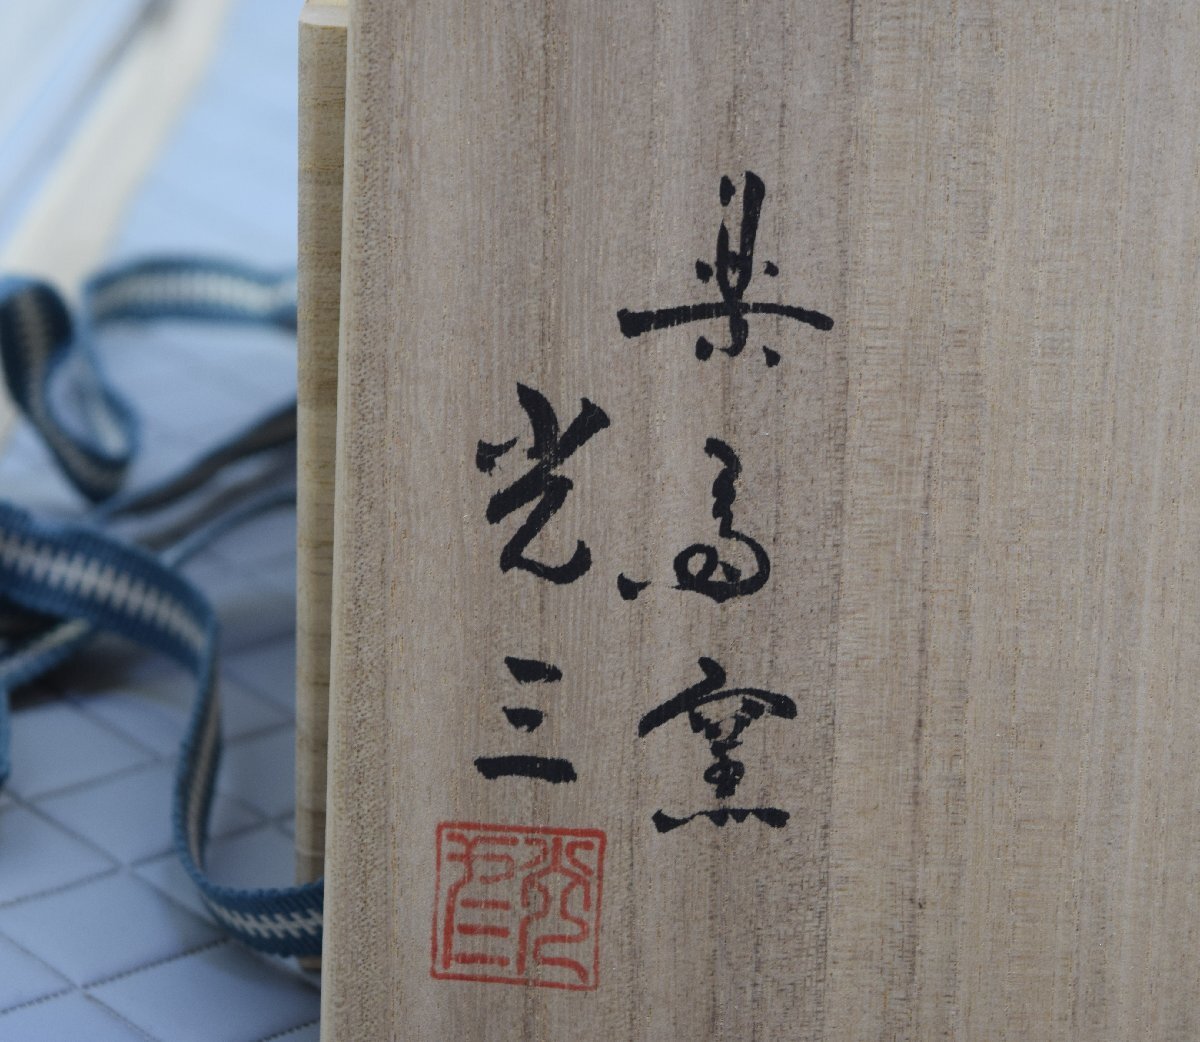 楽斎窯
光三